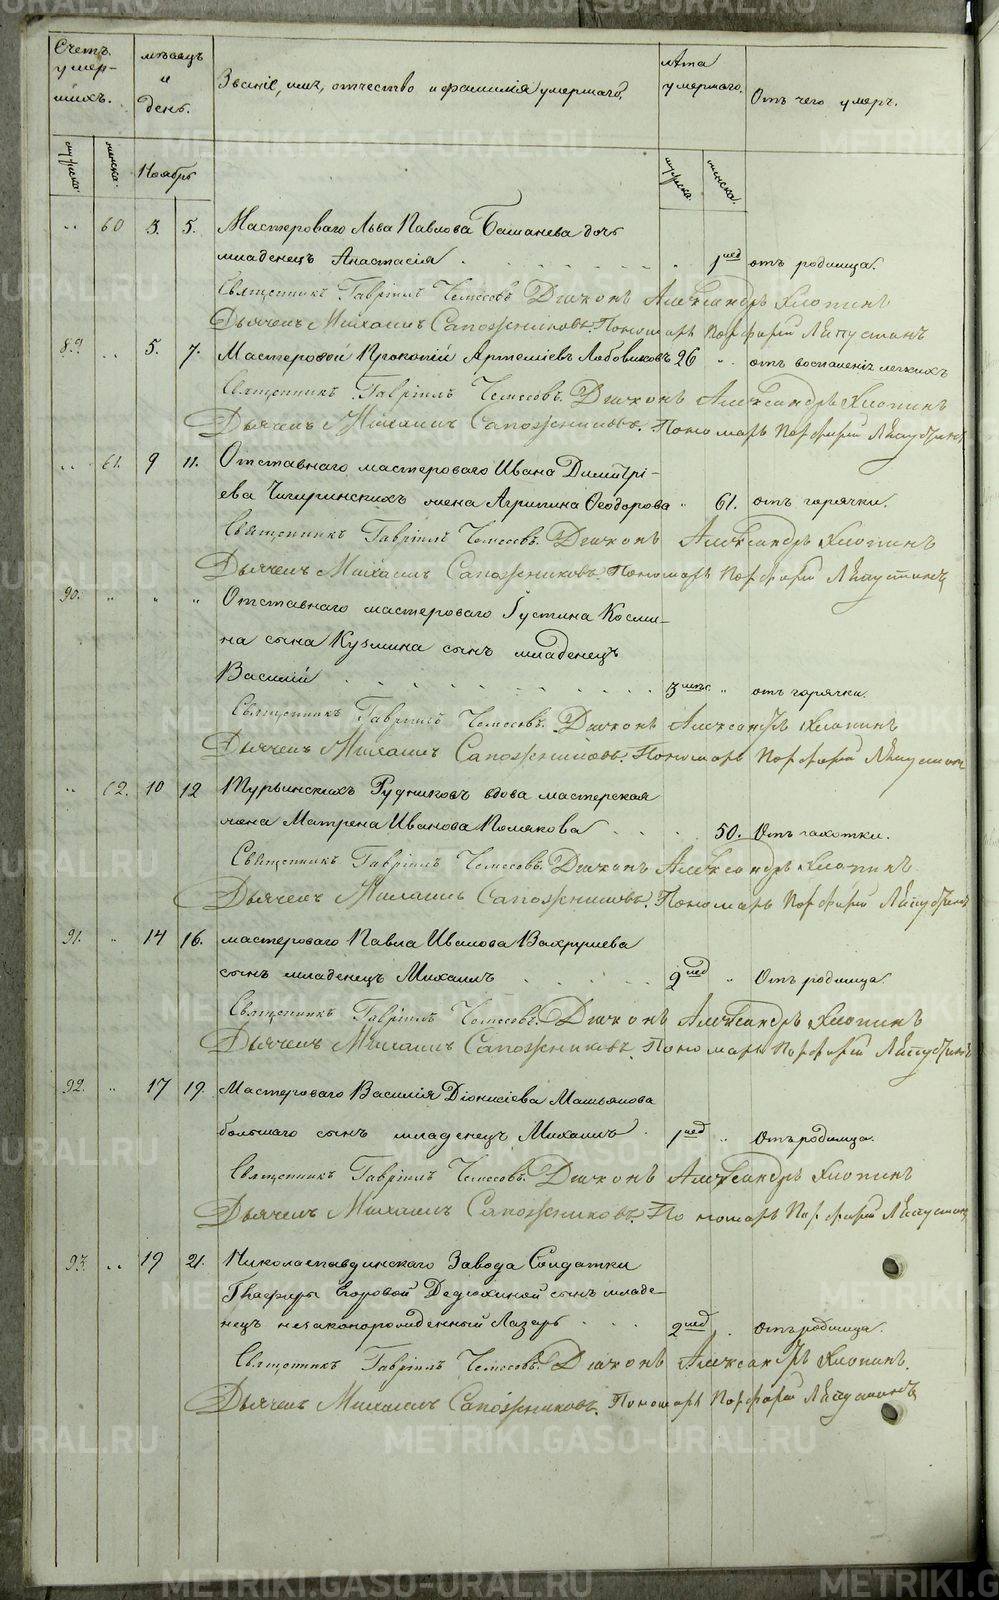 Счетъ умер-
шихъ.
мѣсяцъ
и
день.
Званіе, имя, отчество и фамилія умершаго.
лѣта
умершаго.
Отъ чего умеръ.
мужеска.
женска.
Ноябрь
мужеска.
женска.
" 60 3. 5. Мастероваго Льва Павлова Башанева дочь
младенецъ Анастасія . . . . . . 1 нед отъ родимца.
Священникъ Гавріилъ Чемесовъ. Діаконъ Александръ Хлопинъ
Дьячекъ Михаилъ Сапожниковъ. Пономарь Порфирій Лѣпустинъ
89. " 5. 7. Мастеровой Прокопій Артеміевъ Лобовиковъ 26 " отъ воспаленія легкихъ
Священникъ Гавріилъ Чемесовъ. Діаконъ Александръ Хлопинъ
Дьячекъ Михаилъ Сапожниковъ. Пономарь Порфирій Лѣпустинъ
" 61. 9 11. Отставнаго мастероваго Ивана Димитрі-
ева Чигиринскихъ жена Агрипина Ѳеодорова " 61. отъ горячки.
Священникъ Гавріилъ Чемесовъ. Діаконъ Александръ Хлопинъ
Дьячекъ Михаилъ Сапожниковъ. Пономарь Порфирій Лѣпустинъ
90. " " " Отставнаго мастероваго Густина Косми-
на сына Кузмина сынъ младенецъ
Василій . . . . . . . . 3 мѣс " отъ горячки.
Священникъ Гавріилъ Чемесовъ. Діаконъ Александръ Хлопинъ
Дьячекъ Михаилъ Сапожниковъ. Пономарь Порфирій Лѣпустинъ
" 62. 10 12 Турьинскихъ Рудниковъ вдова мастерская
жена Матрена Иванова Полякова . . . . 50. Отъ чахотки.
Священникъ Гавріилъ Чемесовъ. Діаконъ Александръ Хлопинъ
Дьячекъ Михаилъ Сапожниковъ. Пономарь Порфирій Лѣпустинъ
91. " 14 16. мастероваго Павла Иванова Вахрушева
сынъ младенецъ Михаилъ . . . . . 2 нед " Отъ родимца.
Священникъ Гавріилъ Чемесовъ. Діаконъ Александръ Хлопинъ
Дьячекъ Михаилъ Сапожниковъ. Пономарь Порфирій Лѣпустинъ
92. " 17 19. Мастероваго Василія Діонисіева Машьянова
большаго сынъ младенецъ Михаилъ . 1 нед " Отъ родимца.
Священникъ Гавріилъ Чемесовъ. Діаконъ Александръ Хлопинъ
Дьячекъ Михаилъ Сапожниковъ. Пономарь Порфирій Лѣпустинъ
93. " 19 21. Николаепавдинскаго Завода Солдатки
Глафиры Егоровой Дедюхиной сынъ младе-
нецъ незаконорожденный Лазарь . . . 2 нед . Отъ родимца.
Священникъ Гавріилъ Чемесовъ. Діаконъ Александръ Хлопинъ.
Дьячекъ Михаилъ Сапожниковъ. Пономарь Порфирій Лѣпустинъ
METRIKI.GASO-URAL.RU